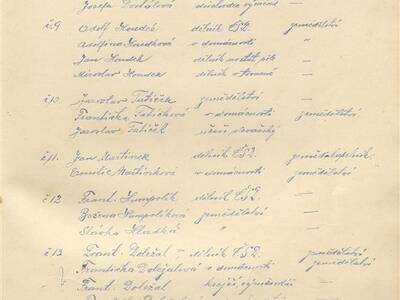 Josefa Doležalová důchodce výměnk. —
č.9 Adolf Houdek dělník ČS2. zemědělství
Adolfina Houdková v domácnosti "
Jan Houdek dělník —
Miroslav Houdek dělník v továrně —
č.10. Jaroslav Tatíček zemědělství —
Františka Tatíčková v domácnosti zemědělství
Jaroslav Tatíček učeň —
č.11. Jan Martinek dělník ČS2.
Emilie Martinková v domácnosti zemědělství
č.12 Frant. Humpolík dělník ČS2. —
Božena Humpolíková zemědělství —
Slávka Hladká " —
č.13 Frant. Doležal – dělník ČS2. zemědělství
Františka Doležalová v domácnosti zemědělství
Frant. Doležal krejčí, —